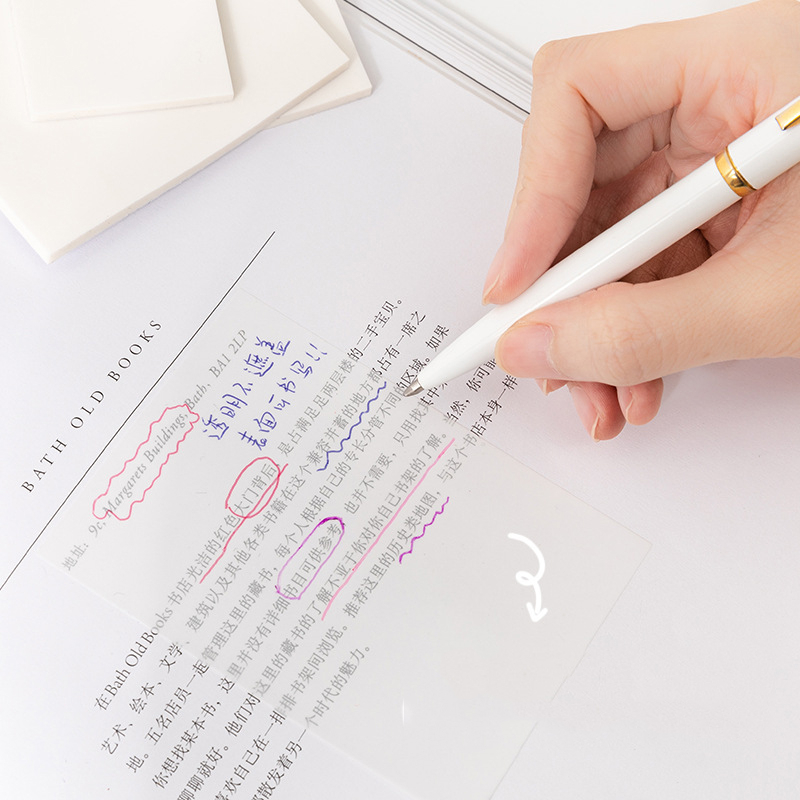 BATH OLD BOOKS
地址：9c, Margarets Buildings, Bath, BA1 2LP
透明不遮盖
表面可书写!!
在Bath Old Books 书店光洁的红色大门背后，是占满足足两层楼的二手宝贝。
艺术、绘本、文学、建筑以及其他各类书籍在这个兼容并蓄的地方都占有一席之
地。五名店员一起管理这里的藏书，每个人根据自己的专长分管不同的区域。如果
你想找某本书，这里并没有详细书目可供参考，也并不需要，只用找其中
聊聊就好。他们对这里的藏书的了解不亚于你对你自己书架的了解。当然，你可能
喜欢自己在一排排书架间浏览。推荐这里的历史类地图，与这个书店本身一样
都散发着另一个时代的魅力。